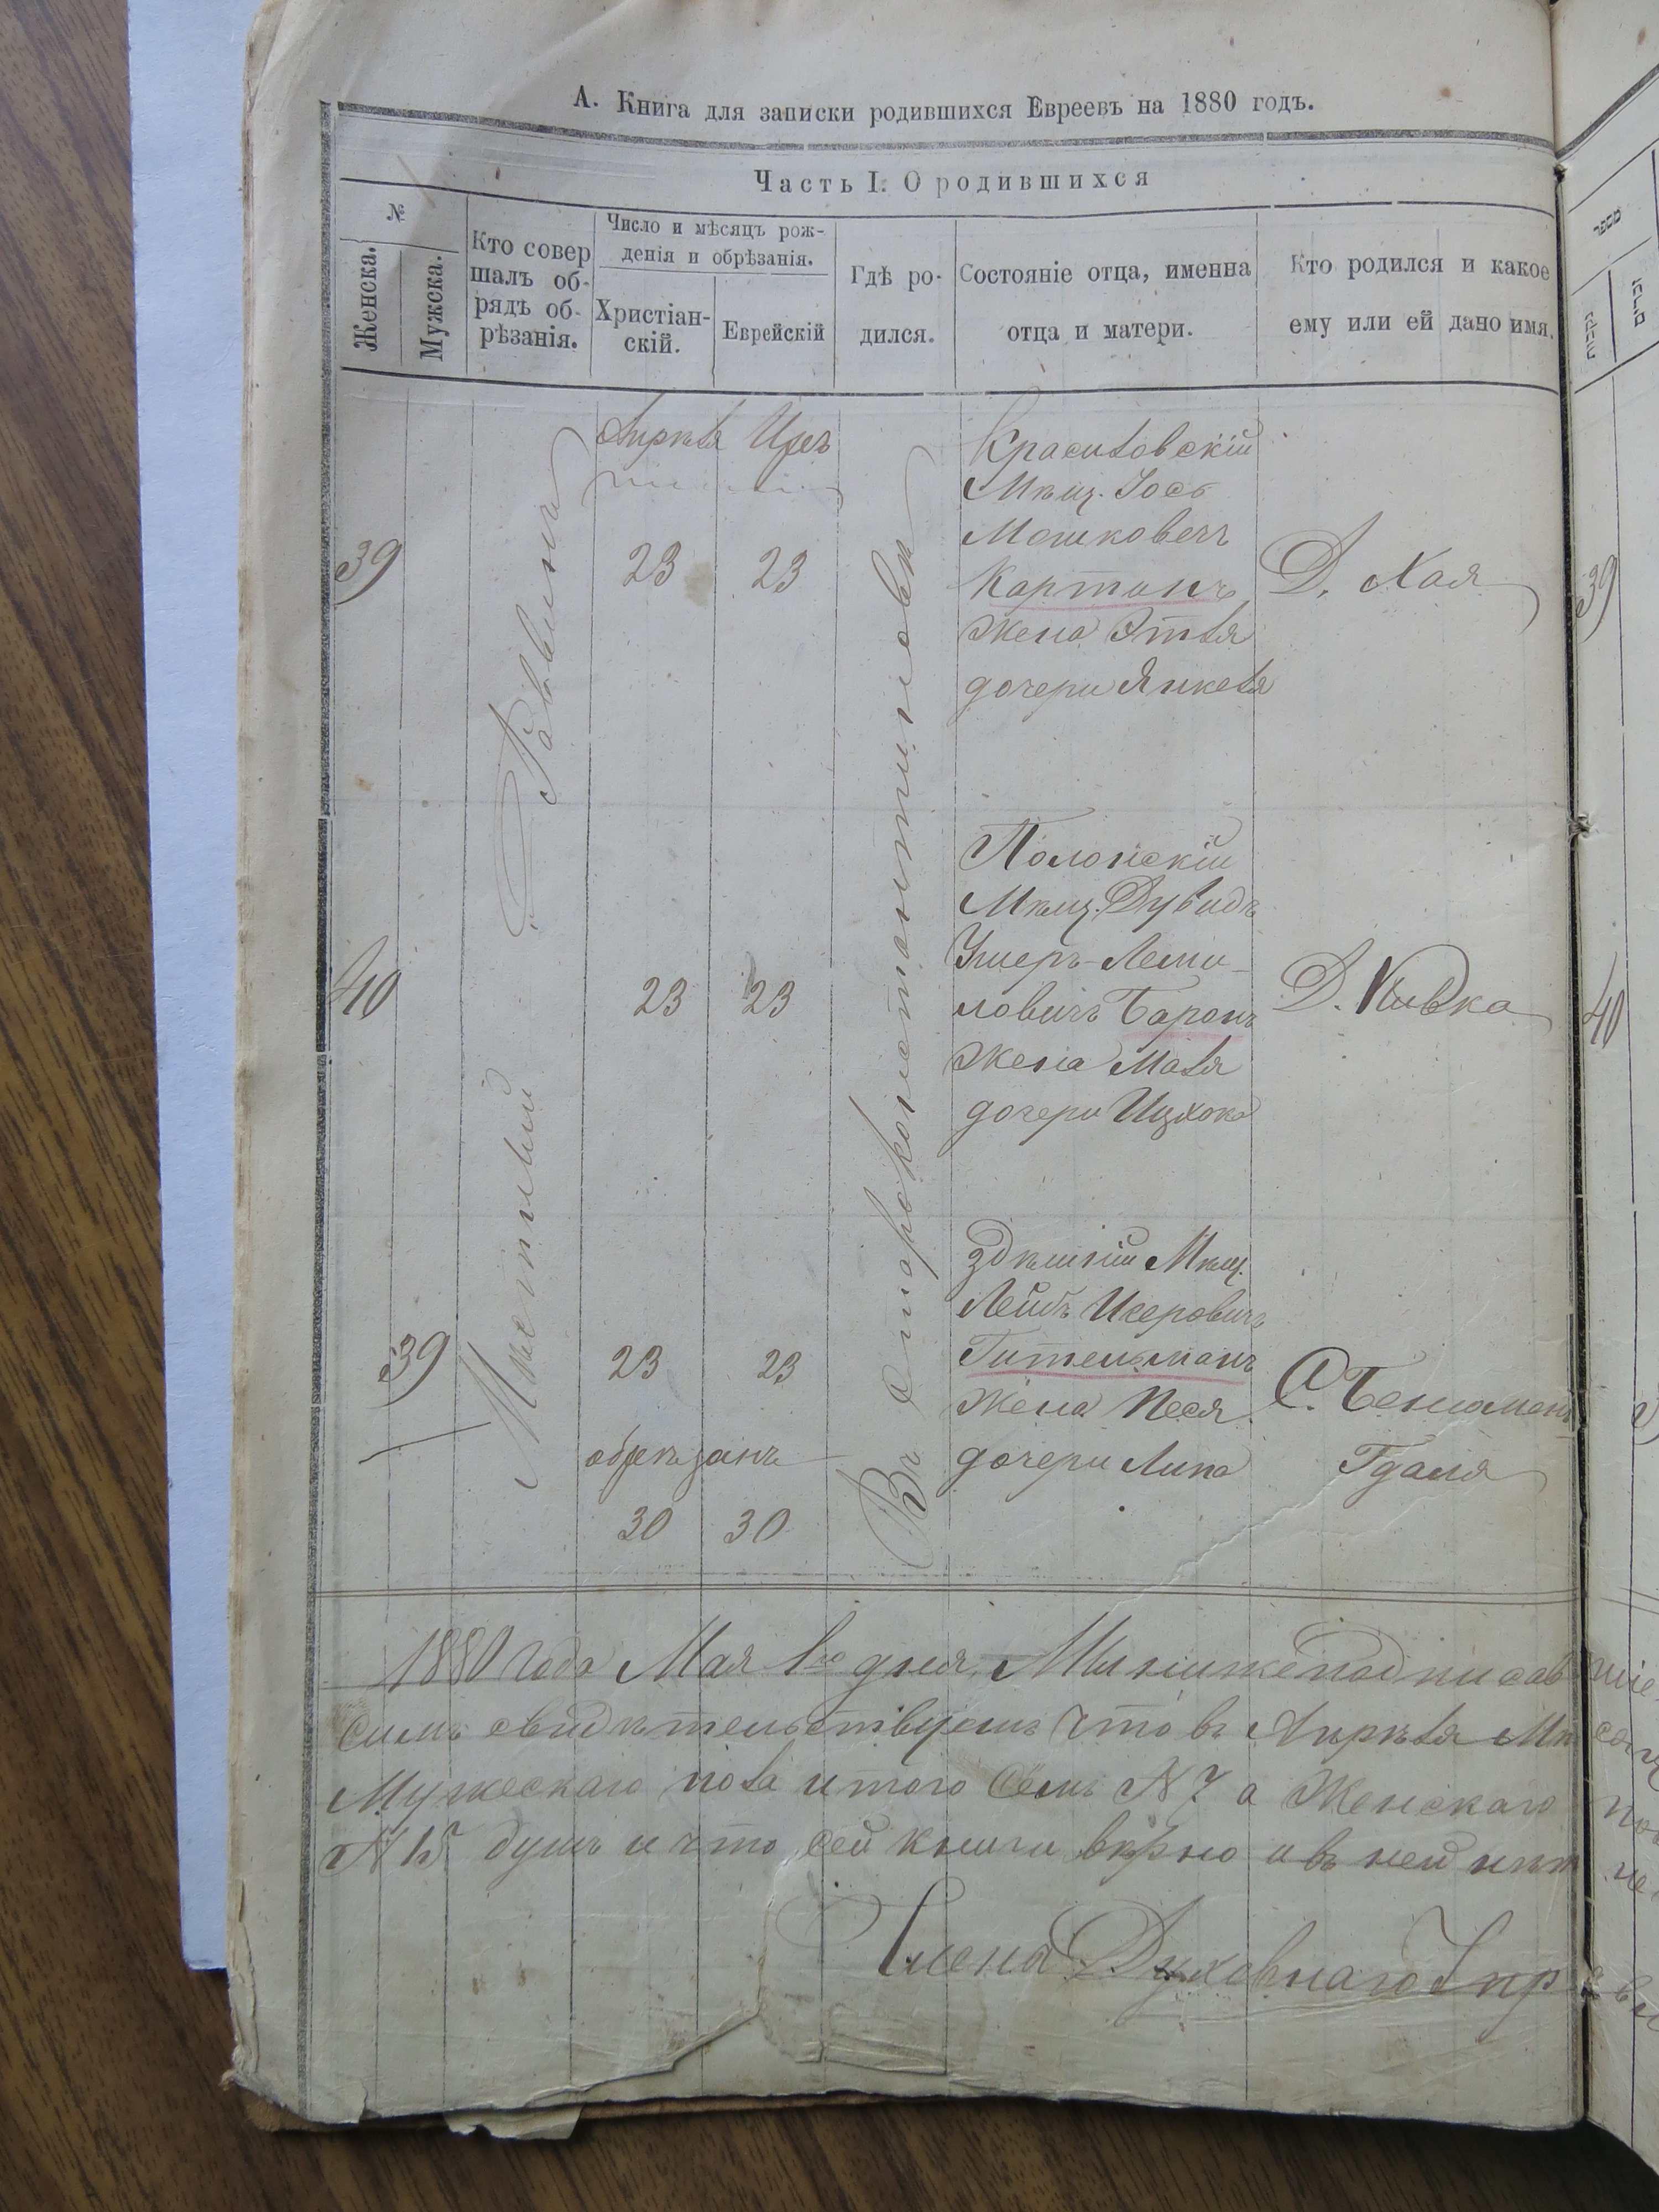 А. Книга для записки родившихся Евреевъ на 1880 годъ.
Часть I. О родившихся
№
Женска.
Мужска.
Кто совер
шалъ об-
рядъ об-
рѣзанія.
Число и мѣсяцъ рож-
денія и обрѣзанія.
Христіан-
скій.
Еврейскій
Гдѣ ро-
дился.
Состояніе отца, именна
отца и матери.
Кто родился и какое
ему или ей дано имя.
Апрѣля Иеръ
Мѣстный Раввинъ
Въ Староконстантиновѣ
39
23
23
Красиловскій
Мѣщ. Іось
Мошковечъ
Картанъ
жена Этля
дочери Янкеля
Д. Хая
39
40
23
23
Полонскій
Мѣщ. Дувидъ
Ушеръ-Леми-
ловичъ Баронъ
жена Маля
дочери Ицхока
Д. Ривка
40
39
23
23
обрѣзанъ
30
30
здѣшній Мѣщ.
Лейбъ Исеровичъ
Гительманъ
жена Песя
дочери Липа
С. Бениоменъ
Гдаля
1880 года Мая 1го дня, Мы нижеподписав
симъ свидѣтельствуемъ что въ Апрѣля Мѣ
Мужескаго пола итого Семъ N 7 а Женскаго
N 15 душъ и что сей книги вѣрно и въ ней нѣт
Члена Духовнаго Упр